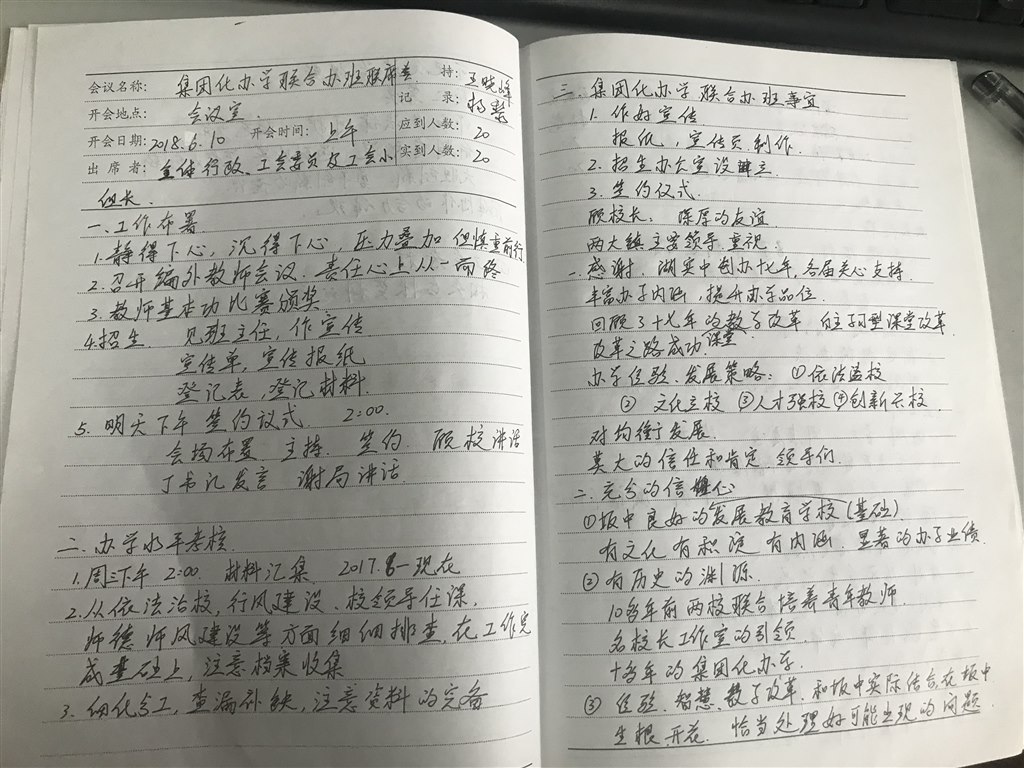 会议名称： 集团化办学联合办班联席会 持： 王晓峰
开会地点： 会议室 记 录：
开会日期：2018.6.10 开会时间： 上午 应到人数：20
出 席 者：全体行政、工会委员及工会小 实到人数：20
组长.
一、工作布署
1.静得下心，沉得下心，压力叠加 但慎重前行
2.召开编外教师会议、责任心上从一而终
3.教师基本功比赛颁奖
4.招生 见班主任，作宣传
宣传单，宣传报纸
登记表，登记材料.
5.明天下午 签约议式. 2:00.
会场布署 主持. 签约. 顾校讲话
丁书记发言 谢局讲话.
二、办学水平考核.
1.周三下午 2:00. 材料汇集 2017.8—现在
2.从依法治校，行风建设、校领导任课，
师德师风建设等方面细细排查，在工作完
成基础上，注意档案收集
3.细化分工，查漏补缺，注意资料的完备
三、集团化办学联合办班事宜
1.作好宣传
报纸，宣传页制作.
2.招生办公室设立.
3.签约仪式.
顾校长： 深厚的友谊
两大镇主要领导重视.
一.感谢. 湖实中创办十七年，各届关心支持.
丰富办学内涵，提升办学品位.
回顾了十七年的教学改革，自主学习型课堂改革.
改革之路成功.课堂
办学经验、发展策略：①依法治校
② 文化立校 ③人才强校④创新兴校.
对均衡发展.
莫大的信任和肯定 领导们.
二.充分的信心
①坂中良好的发展教育学校(基础)
有文化 有积淀 有内涵. 显著的办学业绩.
②有历史的渊源.
10多年前两校联合培养青年教师.
名校长工作室的引领.
十多年的集团化办学.
③ 经验、智慧、教学改革，和坂中实际结合，在坂中
生根、开花. 恰当处理好可能出现的问题.